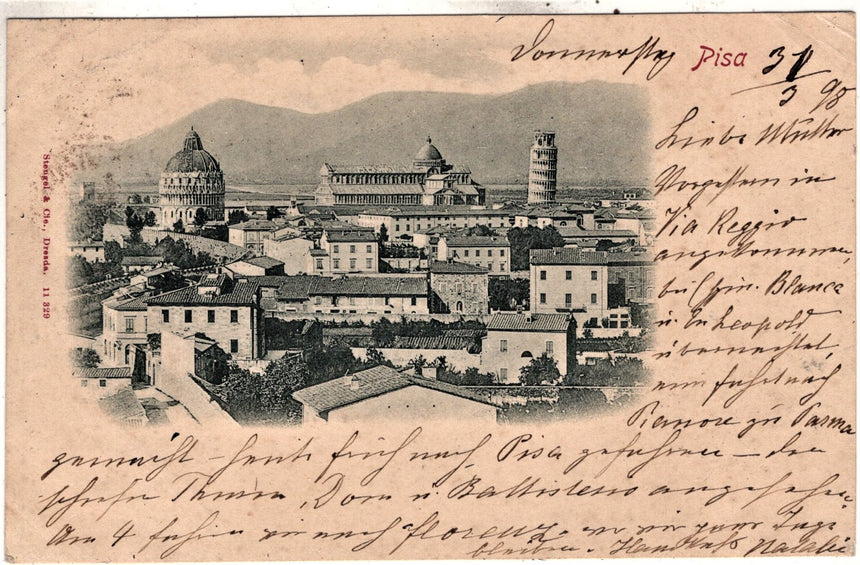 Donnerstg Pisa 31/3 98
Stengel & Cie., Dresda. 11 329
Liebe Mutter
Vorgestern in
Via Reggio
angekommen,
bei Blanca
u. Leopold
übernachtet,
nach
Pianore zu Parma
gemacht – heute früh nach Pisa gefahren – den
schiefen Thurm, Dom u. Battistero angesehen.
Am 4 fahren wir nach Florenz, wo wir paar Tage
bleiben. Handkuß Natalie